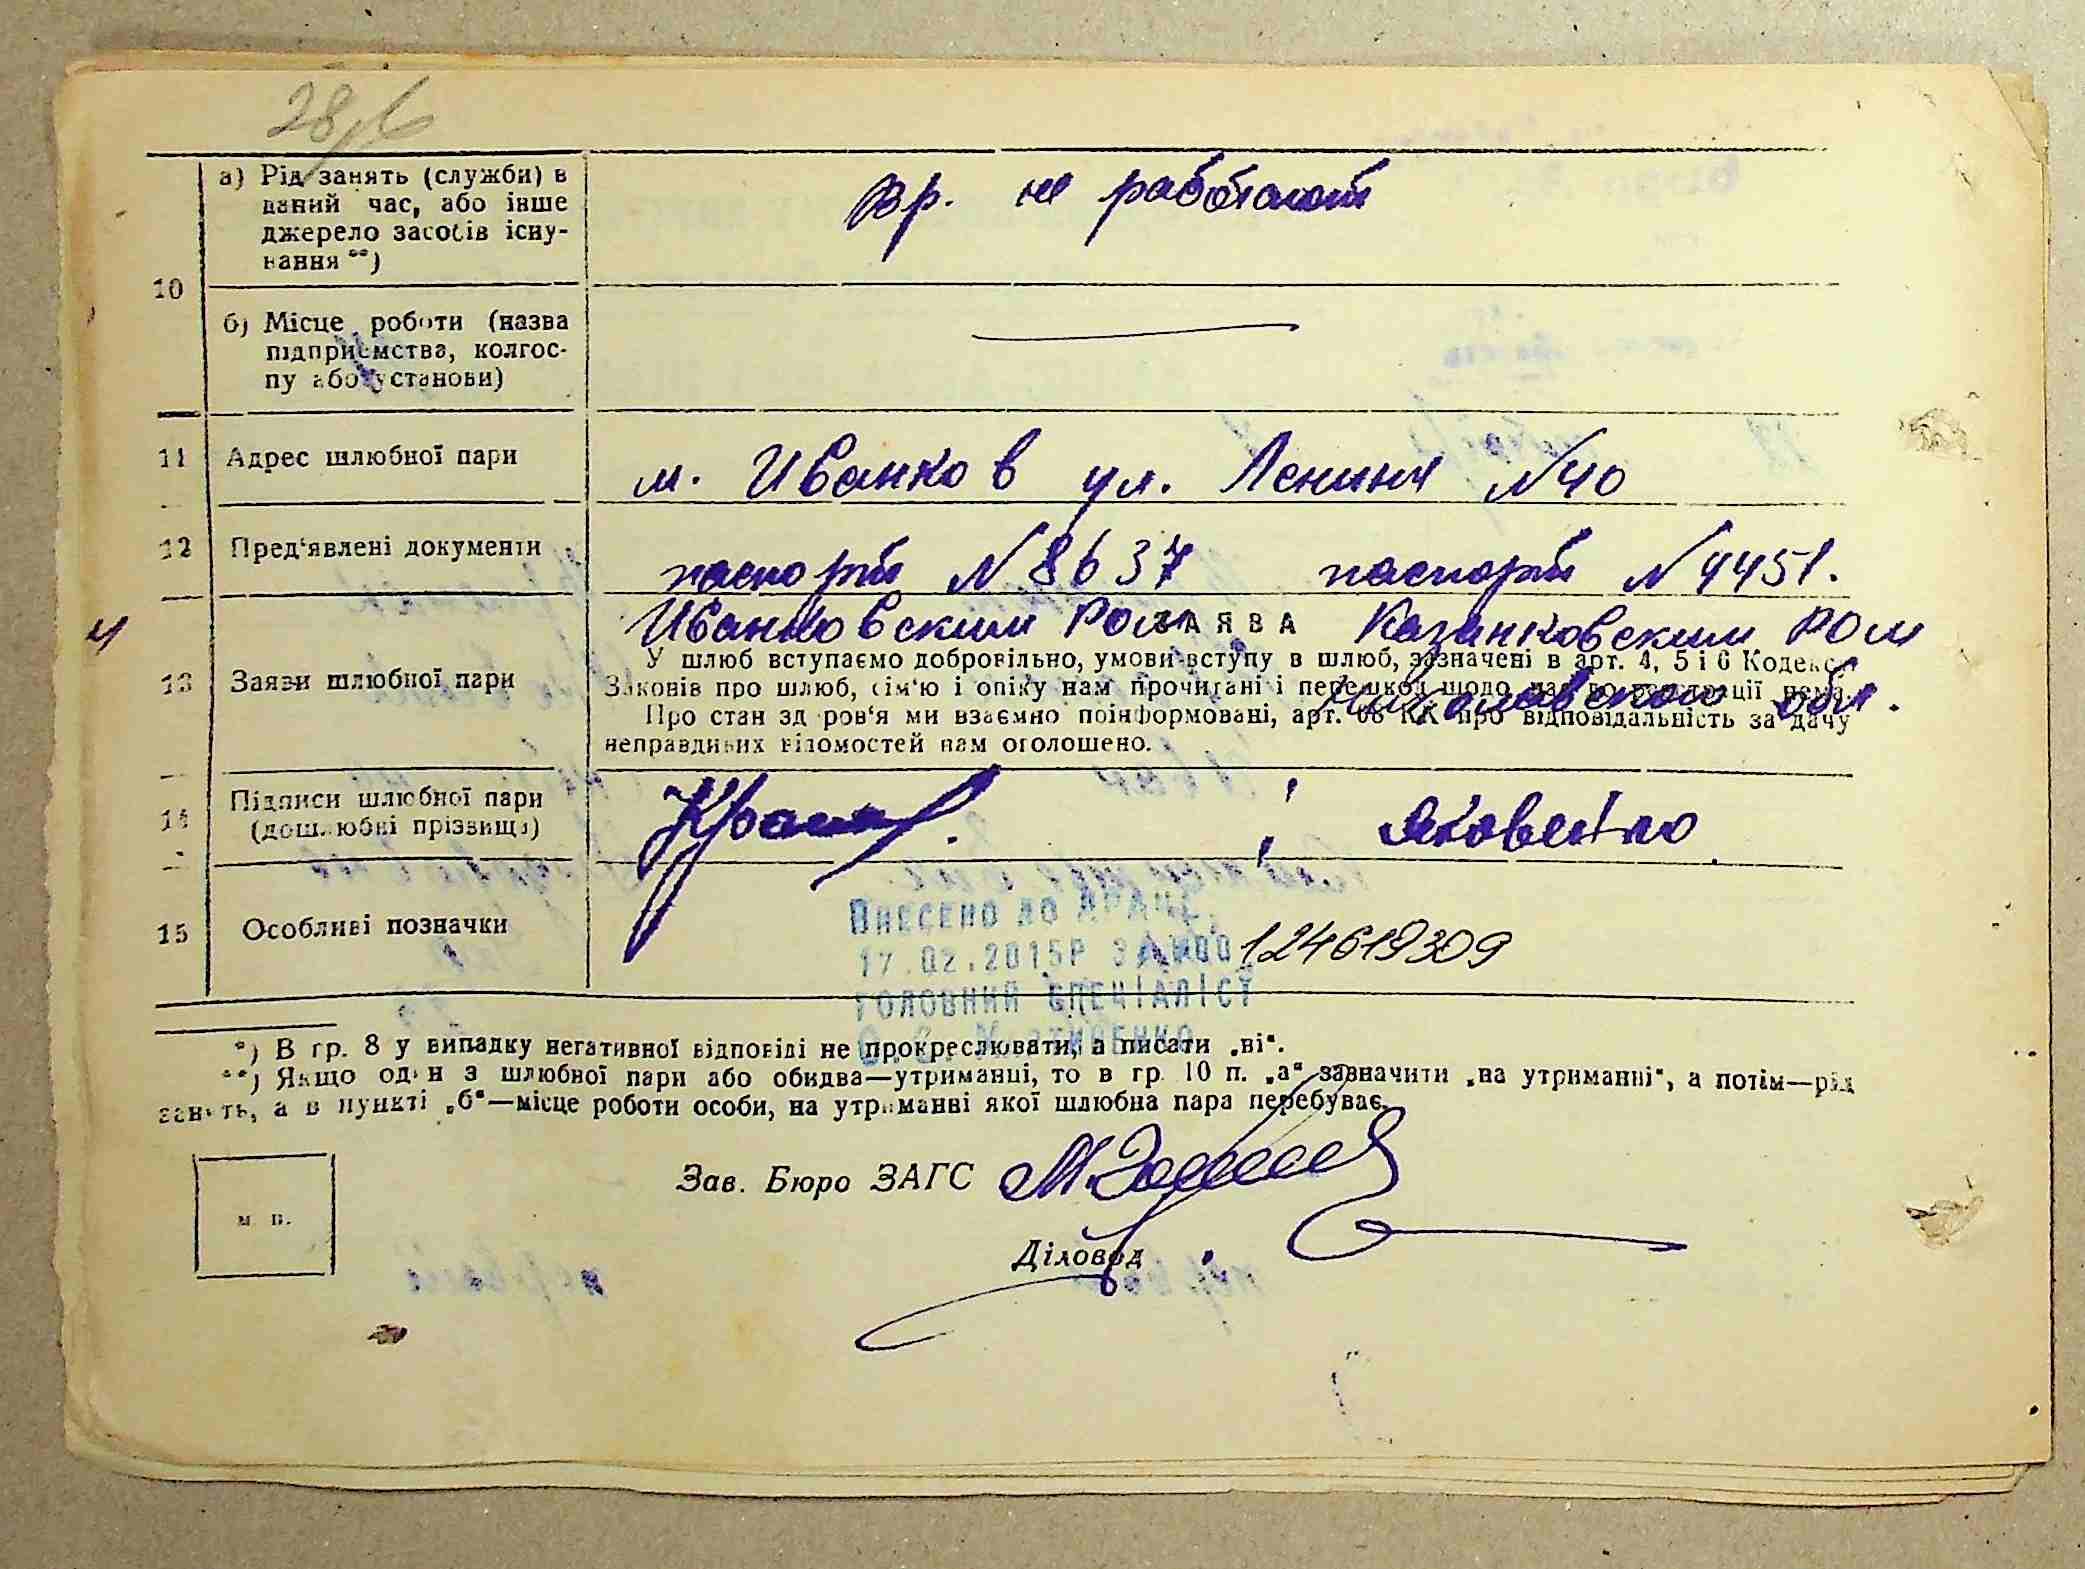 28
10
а) Рід занять (служби) в
даний час, або інше
джерело засобів існу-
вання **)
вр. не работают
б) Місце роботи (назва
підприємства, колгос-
пу або установи)
11
Адрес шлюбної пари
м. Иванков ул. Ленина №40
12
Пред'явлені документи
паспорт №8637 паспорт №4451.
Иванковским РОм Казанковским РОм
Николаевской обл.
13
Заяви шлюбної пари
ЗАЯВА
У шлюб вступаємо добровільно, умови вступу в шлюб, зазначені в арт. 4, 5 і 6 Кодекса
Законів про шлюб, сім'ю і опіку нам прочитані і перешкод щодо нас до реєстрації нема.
Про стан здоров'я ми взаємно поінформовані, арт. 68 КК про відповідальність за дачу
неправдивих відомостей нам оголошено.
14
Підписи шлюбної пари
(дошлюбні прізвища)
Яковенко
15
Особливі позначки
Внесено до ДРАЦС
17.02.2015р за №00124619309
Головний спеціаліст
*) В гр. 8 у випадку негативної відповіді не прокреслювати, а писати „ні“.
**) Якщо один з шлюбної пари або обидва—утриманці, то в гр. 10 п. „а“ зазначити „на утриманні“, а потім—рід
занять, а в пункті „б“—місце роботи особи, на утриманні якої шлюбна пара перебуває.
Зав. Бюро ЗАГС
м п.
Діловод